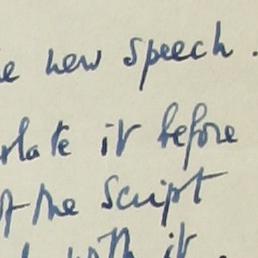 e new speech.
late it before
of the script
with it.